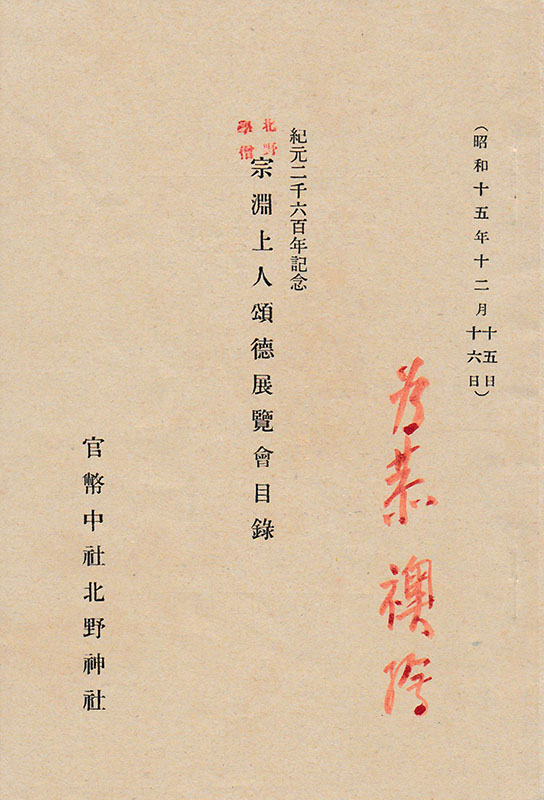 （昭和十五年十二月十五日十六日）
紀元二千六百年記念
北野學僧
宗淵上人頌德展覽會目錄
官幣中社北野神社